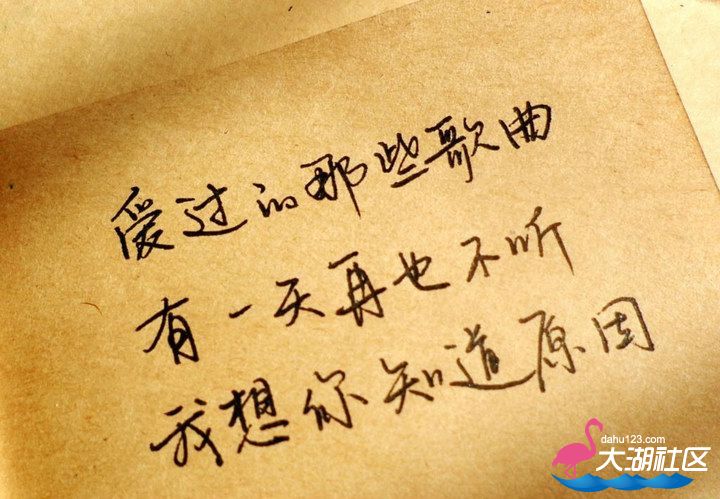 爱过的那些歌曲
有一天再也不听
我想你知道原因
dahu123.com
大湖社区